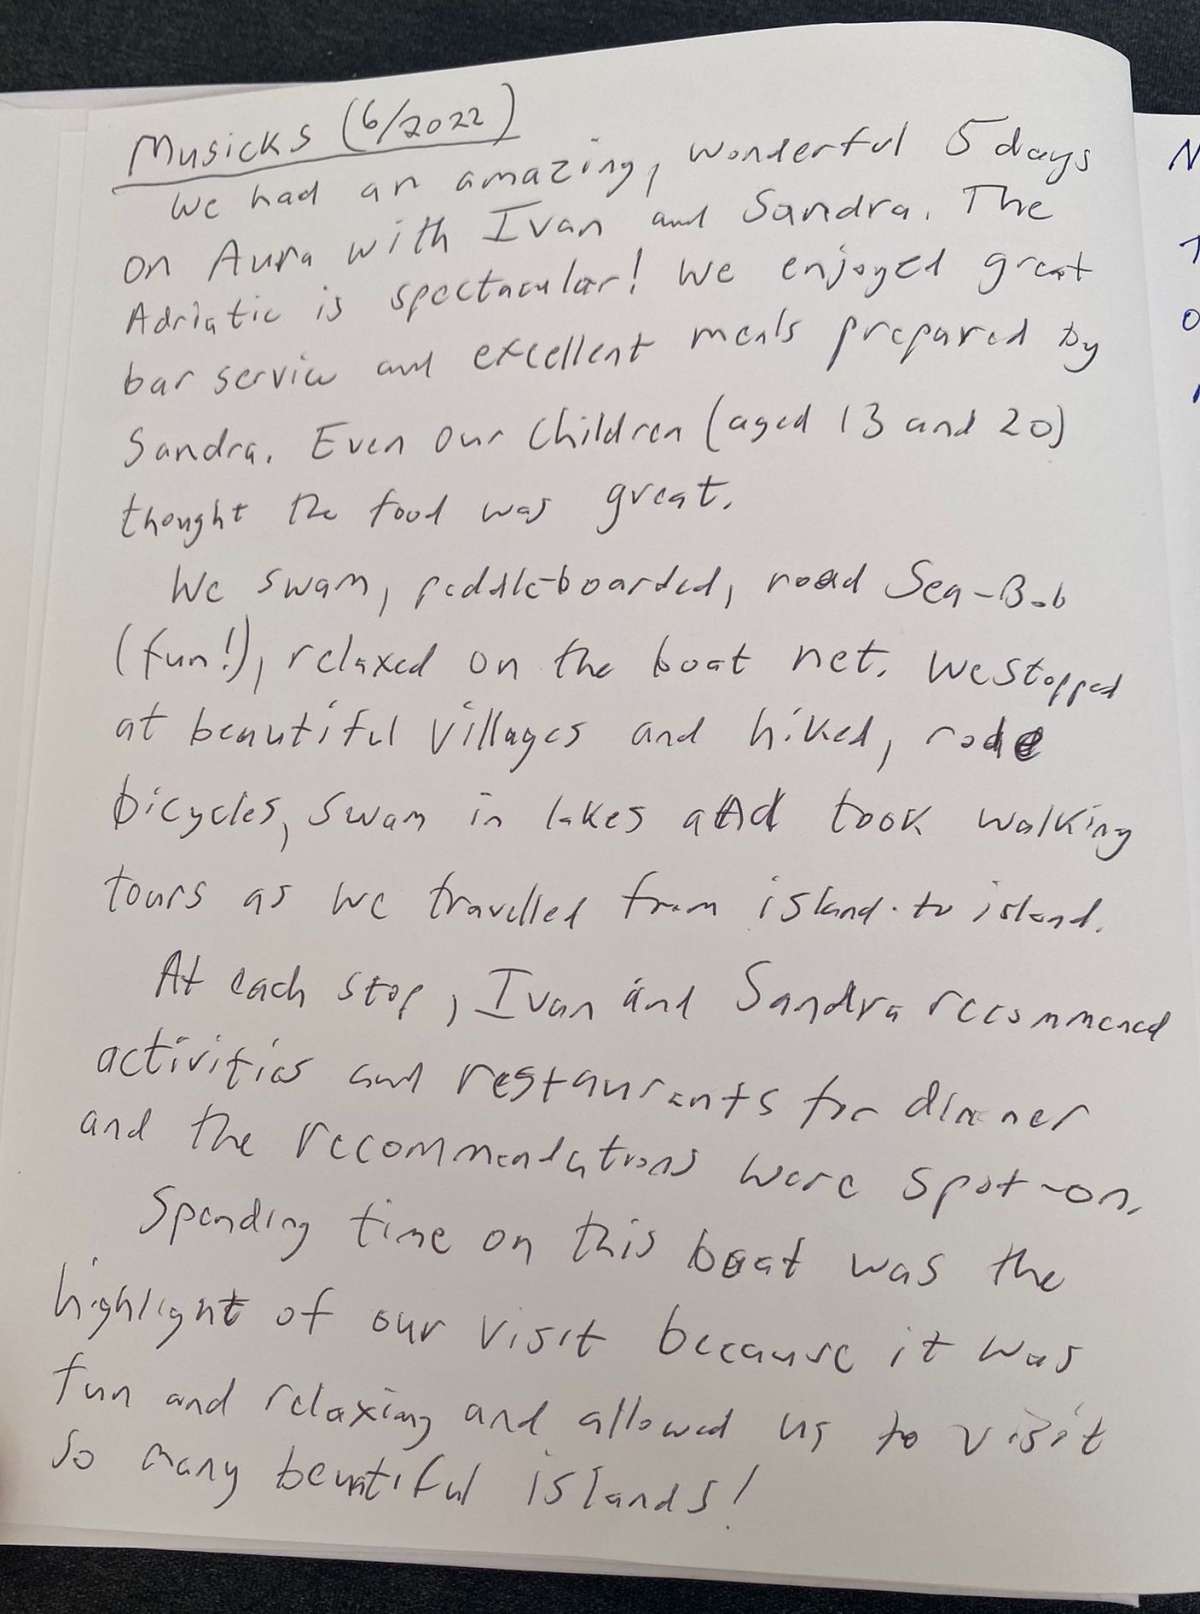 Musicks (6/2022)
We had an amazing, wonderful 5 days
on Aura with Ivan and Sandra. The
Adriatic is spectacular! We enjoyed great
bar service and excellent meals prepared by
Sandra. Even our children (aged 13 and 20)
thought the food was great.
We swam, peddle-boarded, road Sea-Bob
(fun!), relaxed on the boat net. We stopped
at beautiful villages and hiked, rode
bicycles, swam in lakes and took walking
tours as we travelled from island-to island.
At each stop, Ivan and Sandra recommened
activities and restaurants for dinner
and the recommendations were spot-on.
Spending time on this boat was the
highlight of our visit because it was
fun and relaxing and allowed us to visit
so many beautiful islands!
N
T
o